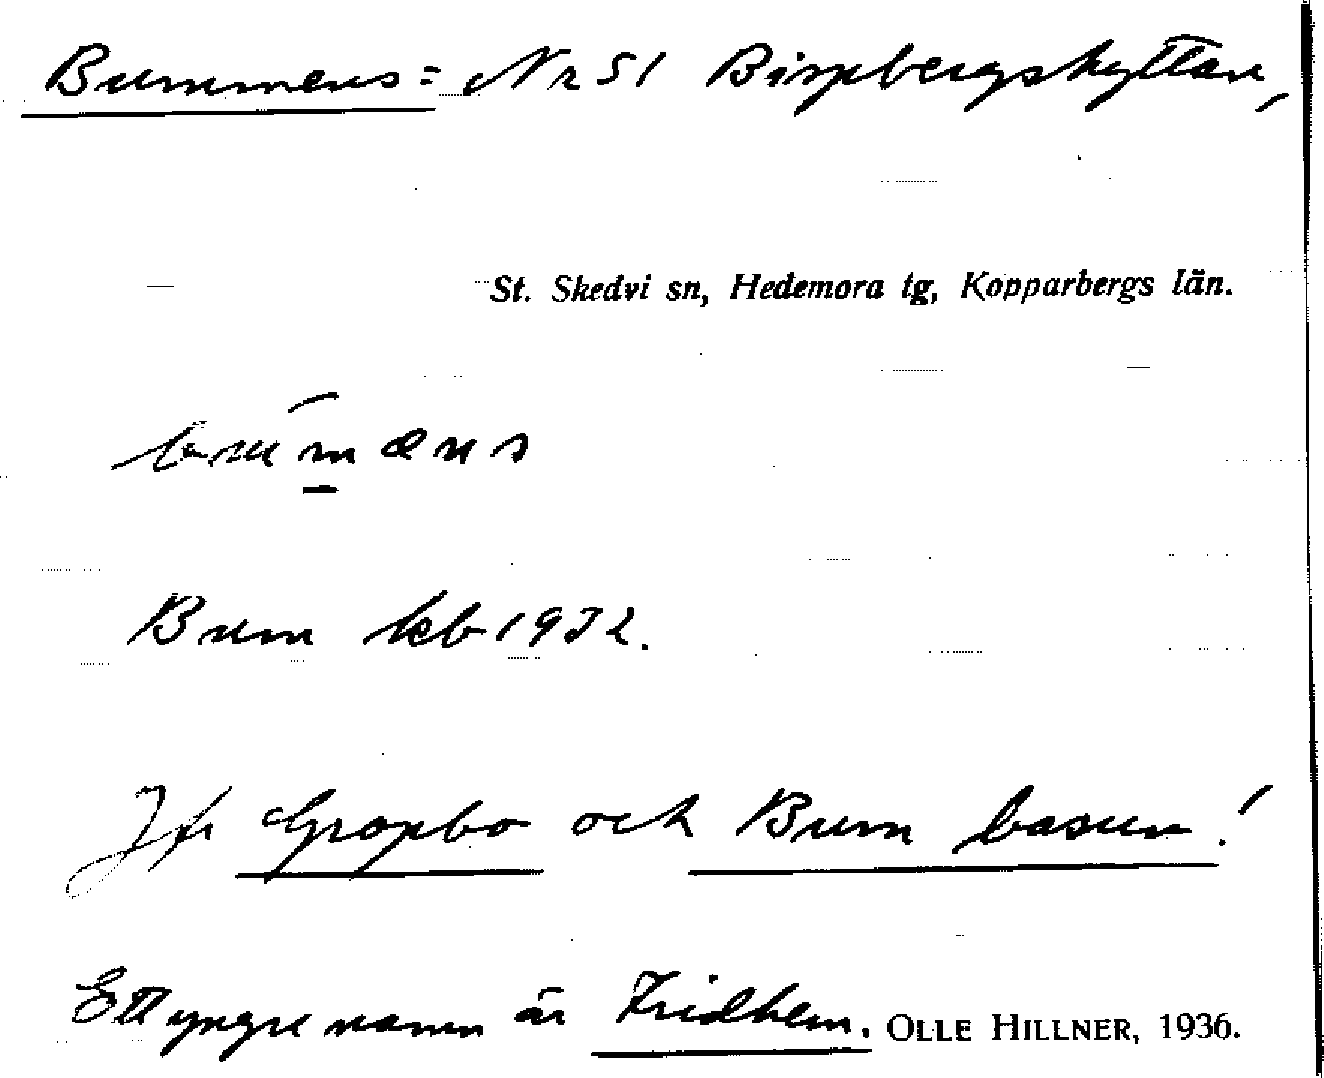 Bummens = Nr 51 Bispbergshyttan,
St. Skedvi sn, Hedemora tg, Kopparbergs län.
bum̄æns
Bum kb 1932.
Jfr Gropbo och Bum basun!
Ett yngre namn är Fridhem. OLLE HILLNER, 1936.